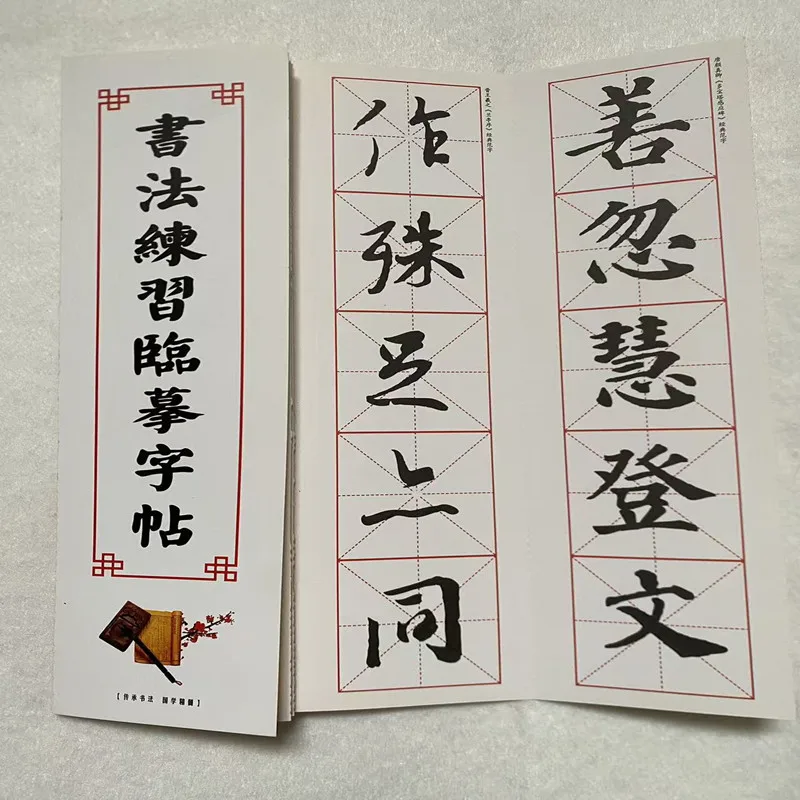 書法練習臨摹字帖
【 传承书法 国学精髓 】
晋王羲之《兰亭序》经典范字
作
殊
足
亦
同
唐颜真卿《多宝塔感应碑》经典范字
善
忽
慧
登
文